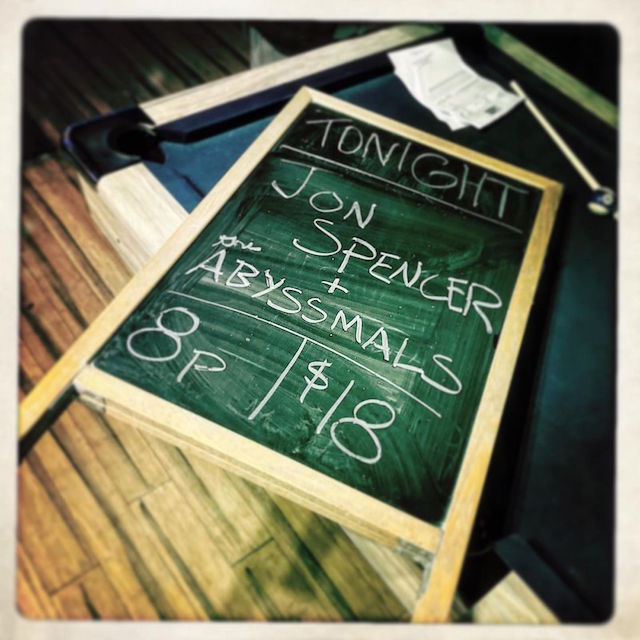 TONIGHT
JON
SPENCER
+
the
ABYSSMALS
8P | $18